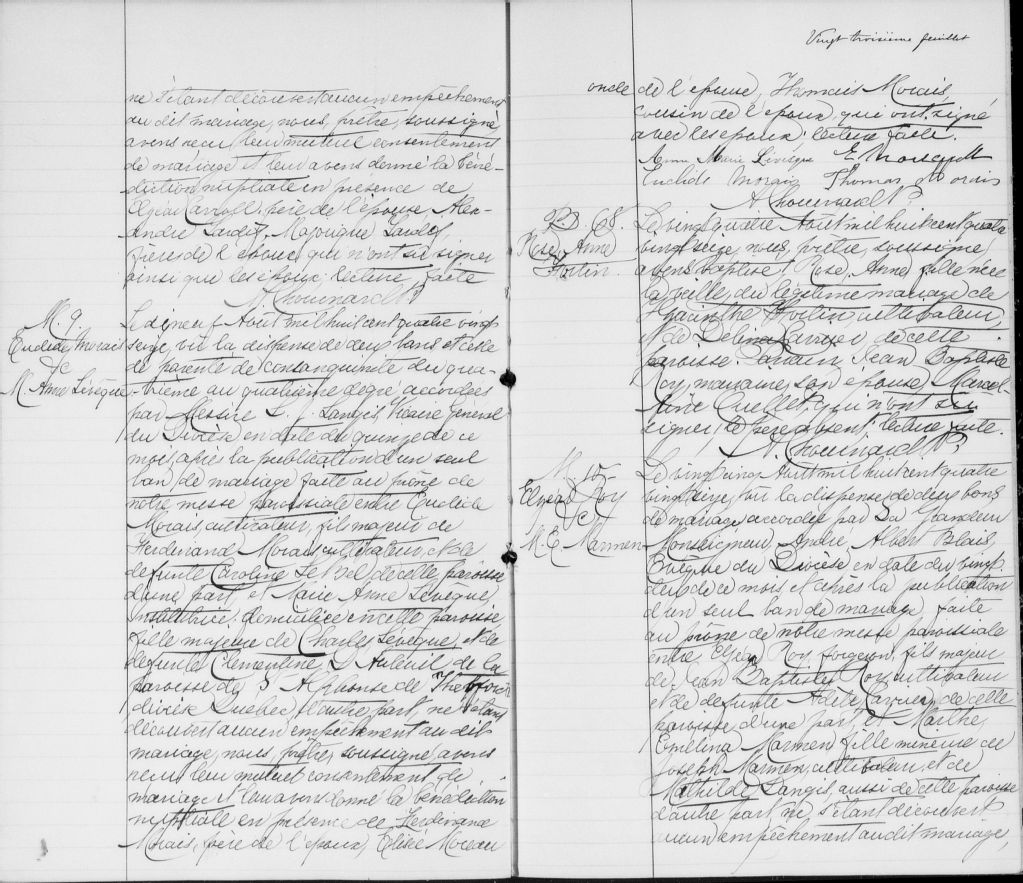 ne s'étant découvert aucun empêchement
au dit mariage, nous, prêtre, soussigné,
avons reçu leur mutuel consentement
de mariage et leur avons donné la béné-
diction nuptiale en présence de
père de l'épouse, Alex-
andre
frères de l'époux qui n'ont su signer
ainsi que les époux. lecture faite
A. Chouinard Ptre
M. 9.
Euclide Morais
&
M. Anne Lévêque
Le dix neuf Août mil huit cent quatre vingt
seize, vu la dispense de deux bans et celle
de parenté de consanguinité du qua-
trième au quatrième degré accordées
par Messire L. J. Langis, Vicaire général
du Diocèse en date du quinze de ce
mois, après la publication d'un seul
ban de mariage faite au prône de
notre messe paroissiale entre Euclide
Morais, cultivateur, fils majeur de
Ferdinand Morais cultivateur, et de
défunte Caroline Lebel de cette paroisse
d'une part, et Marie Anne Levêque
Institutrice, domiciliée en cette paroisse
fille majeure de Charles Levêque, et de
défunte Clémentine D'Auteuil de la
paroisse de St Alphonse de
diocèse Québec d'autre part, ne s'étant
découvert aucun empêchement au dit
mariage, nous, prêtre, soussigné, avons
reçu leur mutuel consentement de
mariage et leur avons donné la bénédiction
nuptiale en présence de Ferdinand
Morais, père de l'époux, Elisé Moreau
Vingt troisième feuillet
oncle de l'épouse, Thomas Morais,
cousin de l'époux, qui ont signé
avec les époux. lecture faite.
Anna Marie Lévêque
Euclide Morais Thomas Morais
A. Chouinard Ptre
B 68.
Rose Anna
Fortin.
Le vingt quatre Août mil huit cent quatre
vingt seize, nous, prêtre, soussigné
avons baptisé Rose, Anna, fille née
la veille, du légitime mariage de
Hyacinthe Fortin cultivateur,
et de Delina Carrier de cette
paroisse. Parrain, Jean Baptiste
Roy, marraine, son épouse, Marcel-
line Ouellet, qui n'ont su
signer, le père absent. lecture faite.
A. Chouinard Ptre
M 10
Elzéar Roy
&
M. E. Marmen
Le vingt cinq Août mil huit cent quatre
vingt seize, vu la dispense de deux bans
de mariage accordée par Sa Grandeur
Monseigneur, André Albert Blais,
Evêque du Diocèse en date du vingt
deux de ce mois et après la publication
d'un seul ban de mariage faite
au prône de notre messe paroissiale
entre, Elzéar Roy, forgeron, fils majeur
de Jean Baptiste Roy cultivateur
et de défunte Adèle Carrier, de cette
paroisse d'une part, et Marthe,
Emélina Marmen, fille mineure de
Joseph Marmen, cultivateur, et de
Mathilde Langis, aussi de cette paroisse
d'autre part, ne, s'étant découvert
aucun empêchement au dit mariage,